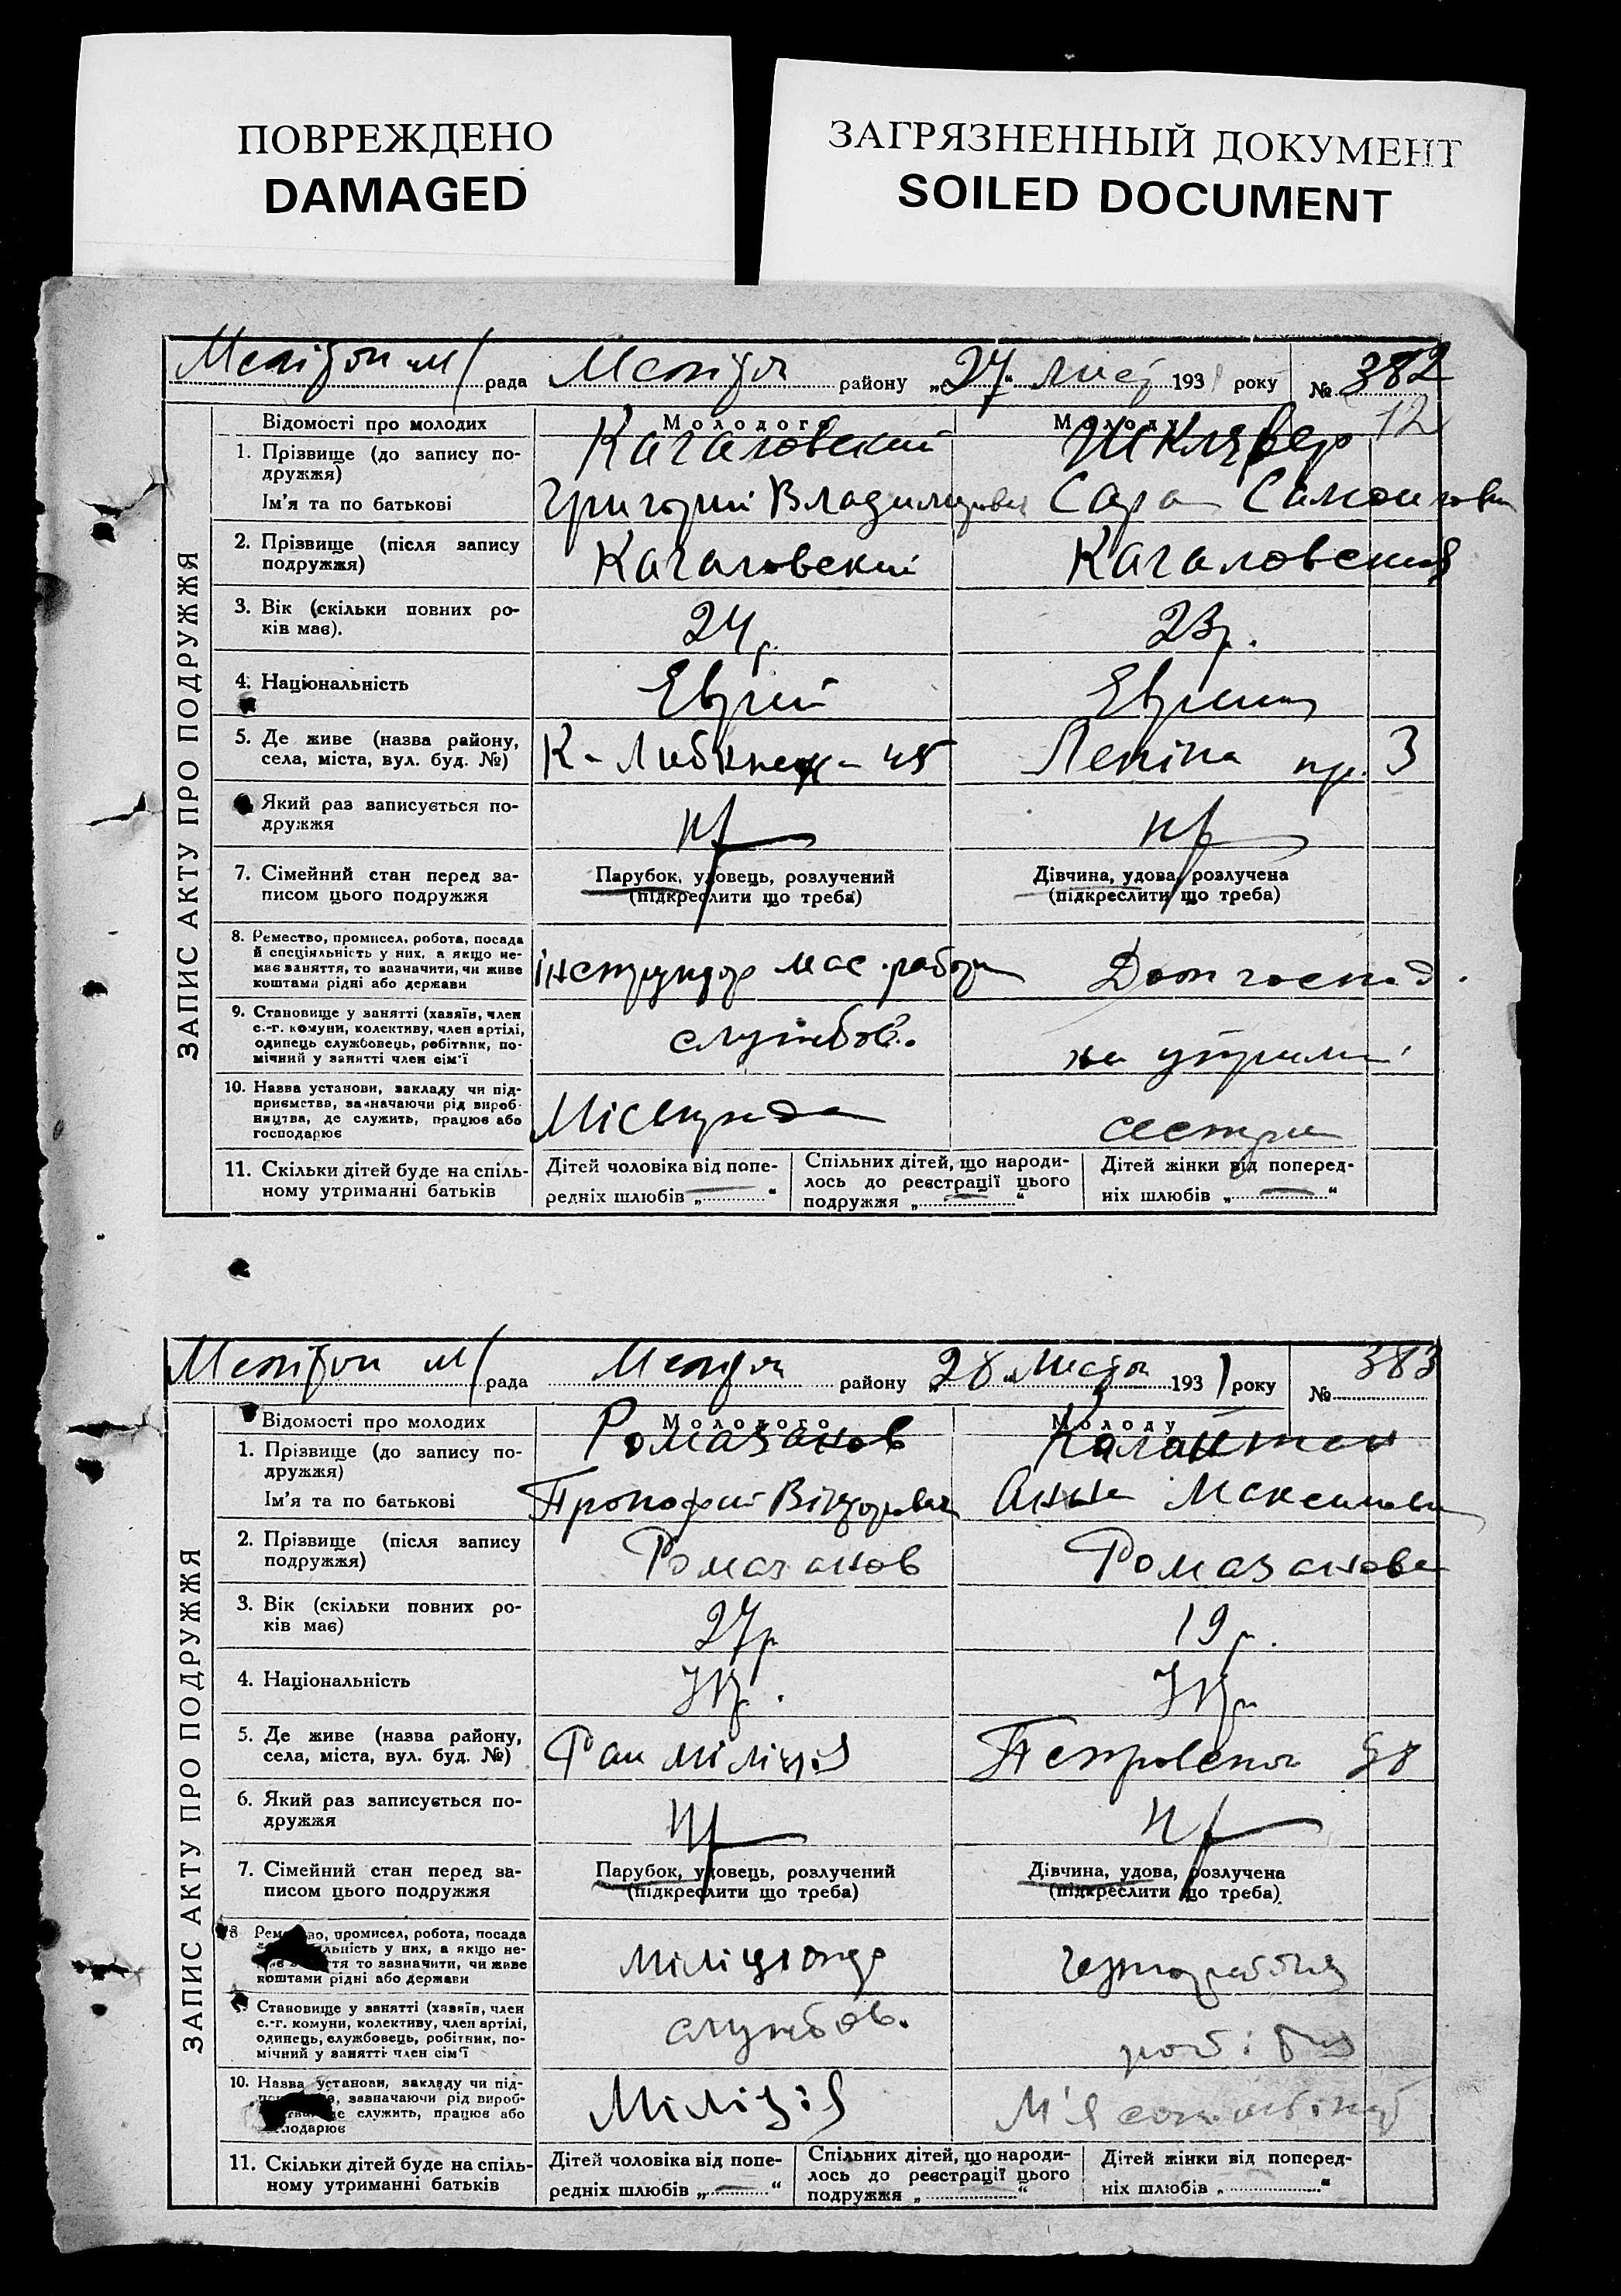 ПОВРЕЖДЕНО
DAMAGED
ЗАГРЯЗНЕННЫЙ ДОКУМЕНТ
SOILED DOCUMENT
рада району „27“ лист 1931 року № 382
12
ЗАПИС АКТУ ПРО ПОДРУЖЖЯ
Відомості про молодих Молодого Молоду
1. Прізвище (до запису по-
дружжя) Кагаловский Шклявер
Ім'я та по батькові Григорий Владимирович Сара
2. Прізвище (після запису
подружжя) Кагаловский Кагаловская
3. Вік (скільки повних ро-
ків має). 24 р. 23 р.
4. Національність Еврей
5. Де живе (назва району,
села, міста, вул. буд. №) К-Либкнех- 45 Леніна пр. 3
6 Який раз записується по-
дружжя
7. Сімейний стан перед за-
писом цього подружжя
Парубок, удовець, розлучений
(підкреслити що треба)
Дівчина, удова, розлучена
(підкреслити що треба)
8. Ремество, промисел, робота, посада
й спеціяльність у них, а якщо не-
має заняття, то зазначити, чи живе
коштами рідні або держави
інструктор мас. работи Дом господ.
9. Становище у занятті (хазяїн, член
с.-г. комуни, колективу, член артілі,
одинець службовець, робітник, по-
мічний у занятті член сім'ї
службов. на утрим.
10. Назва установи, закладу чи під-
приємства, зазначаючи рід вироб-
ництва, де служить, працює або
господарює
Міськрада сестри
11. Скільки дітей буде на спіль-
ному утриманні батьків
Дітей чоловіка від попе-
редніх шлюбів „ — “
Спільних дітей, що народи-
лось до реєстрації цього
подружжя „ — “
Дітей жінки від поперед-
ніх шлюбів „ — “
рада району 28 1931 року № 383
ЗАПИС АКТУ ПРО ПОДРУЖЖЯ
Відомості про молодих Молодого Молоду
1. Прізвище (до запису по-
дружжя) Ромазанов
Ім'я та по батькові Прокофий Вікторович Анна Максимовна
2. Прізвище (після запису
подружжя) Ромазанов Ромазанова
3. Вік (скільки повних ро-
ків має) 27 р 19 р.
4. Національність Укр. Укр.
5. Де живе (назва району,
села, міста, вул. буд. №) Рай міліція
6. Який раз записується по-
дружжя
7. Сімейний стан перед за-
писом цього подружжя
Парубок, удовець, розлучений
(підкреслити що треба)
Дівчина, удова, розлучена
(підкреслити що треба)
8 промисел, робота, посада
у них, а якщо не-
то зазначити, чи живе
коштами рідні або держави
Міліціонер
Становище у занятті (хазяїн, член
с.-г. комуни, колективу, член артілі,
одинець, службовець, робітник, по-
мічний у занятті член сім'ї
службов.
10. Назва установи, закладу чи під-
зазначаючи рід вироб-
служить, працює або
Міліція
11. Скільки дітей буде на спіль-
ному утриманні батьків
Дітей чоловіка від попе-
редніх шлюбів „ — “
Спільних дітей, що народи-
лось до реєстрації цього
подружжя „ — “
Дітей жінки від поперед-
ніх шлюбів „ “